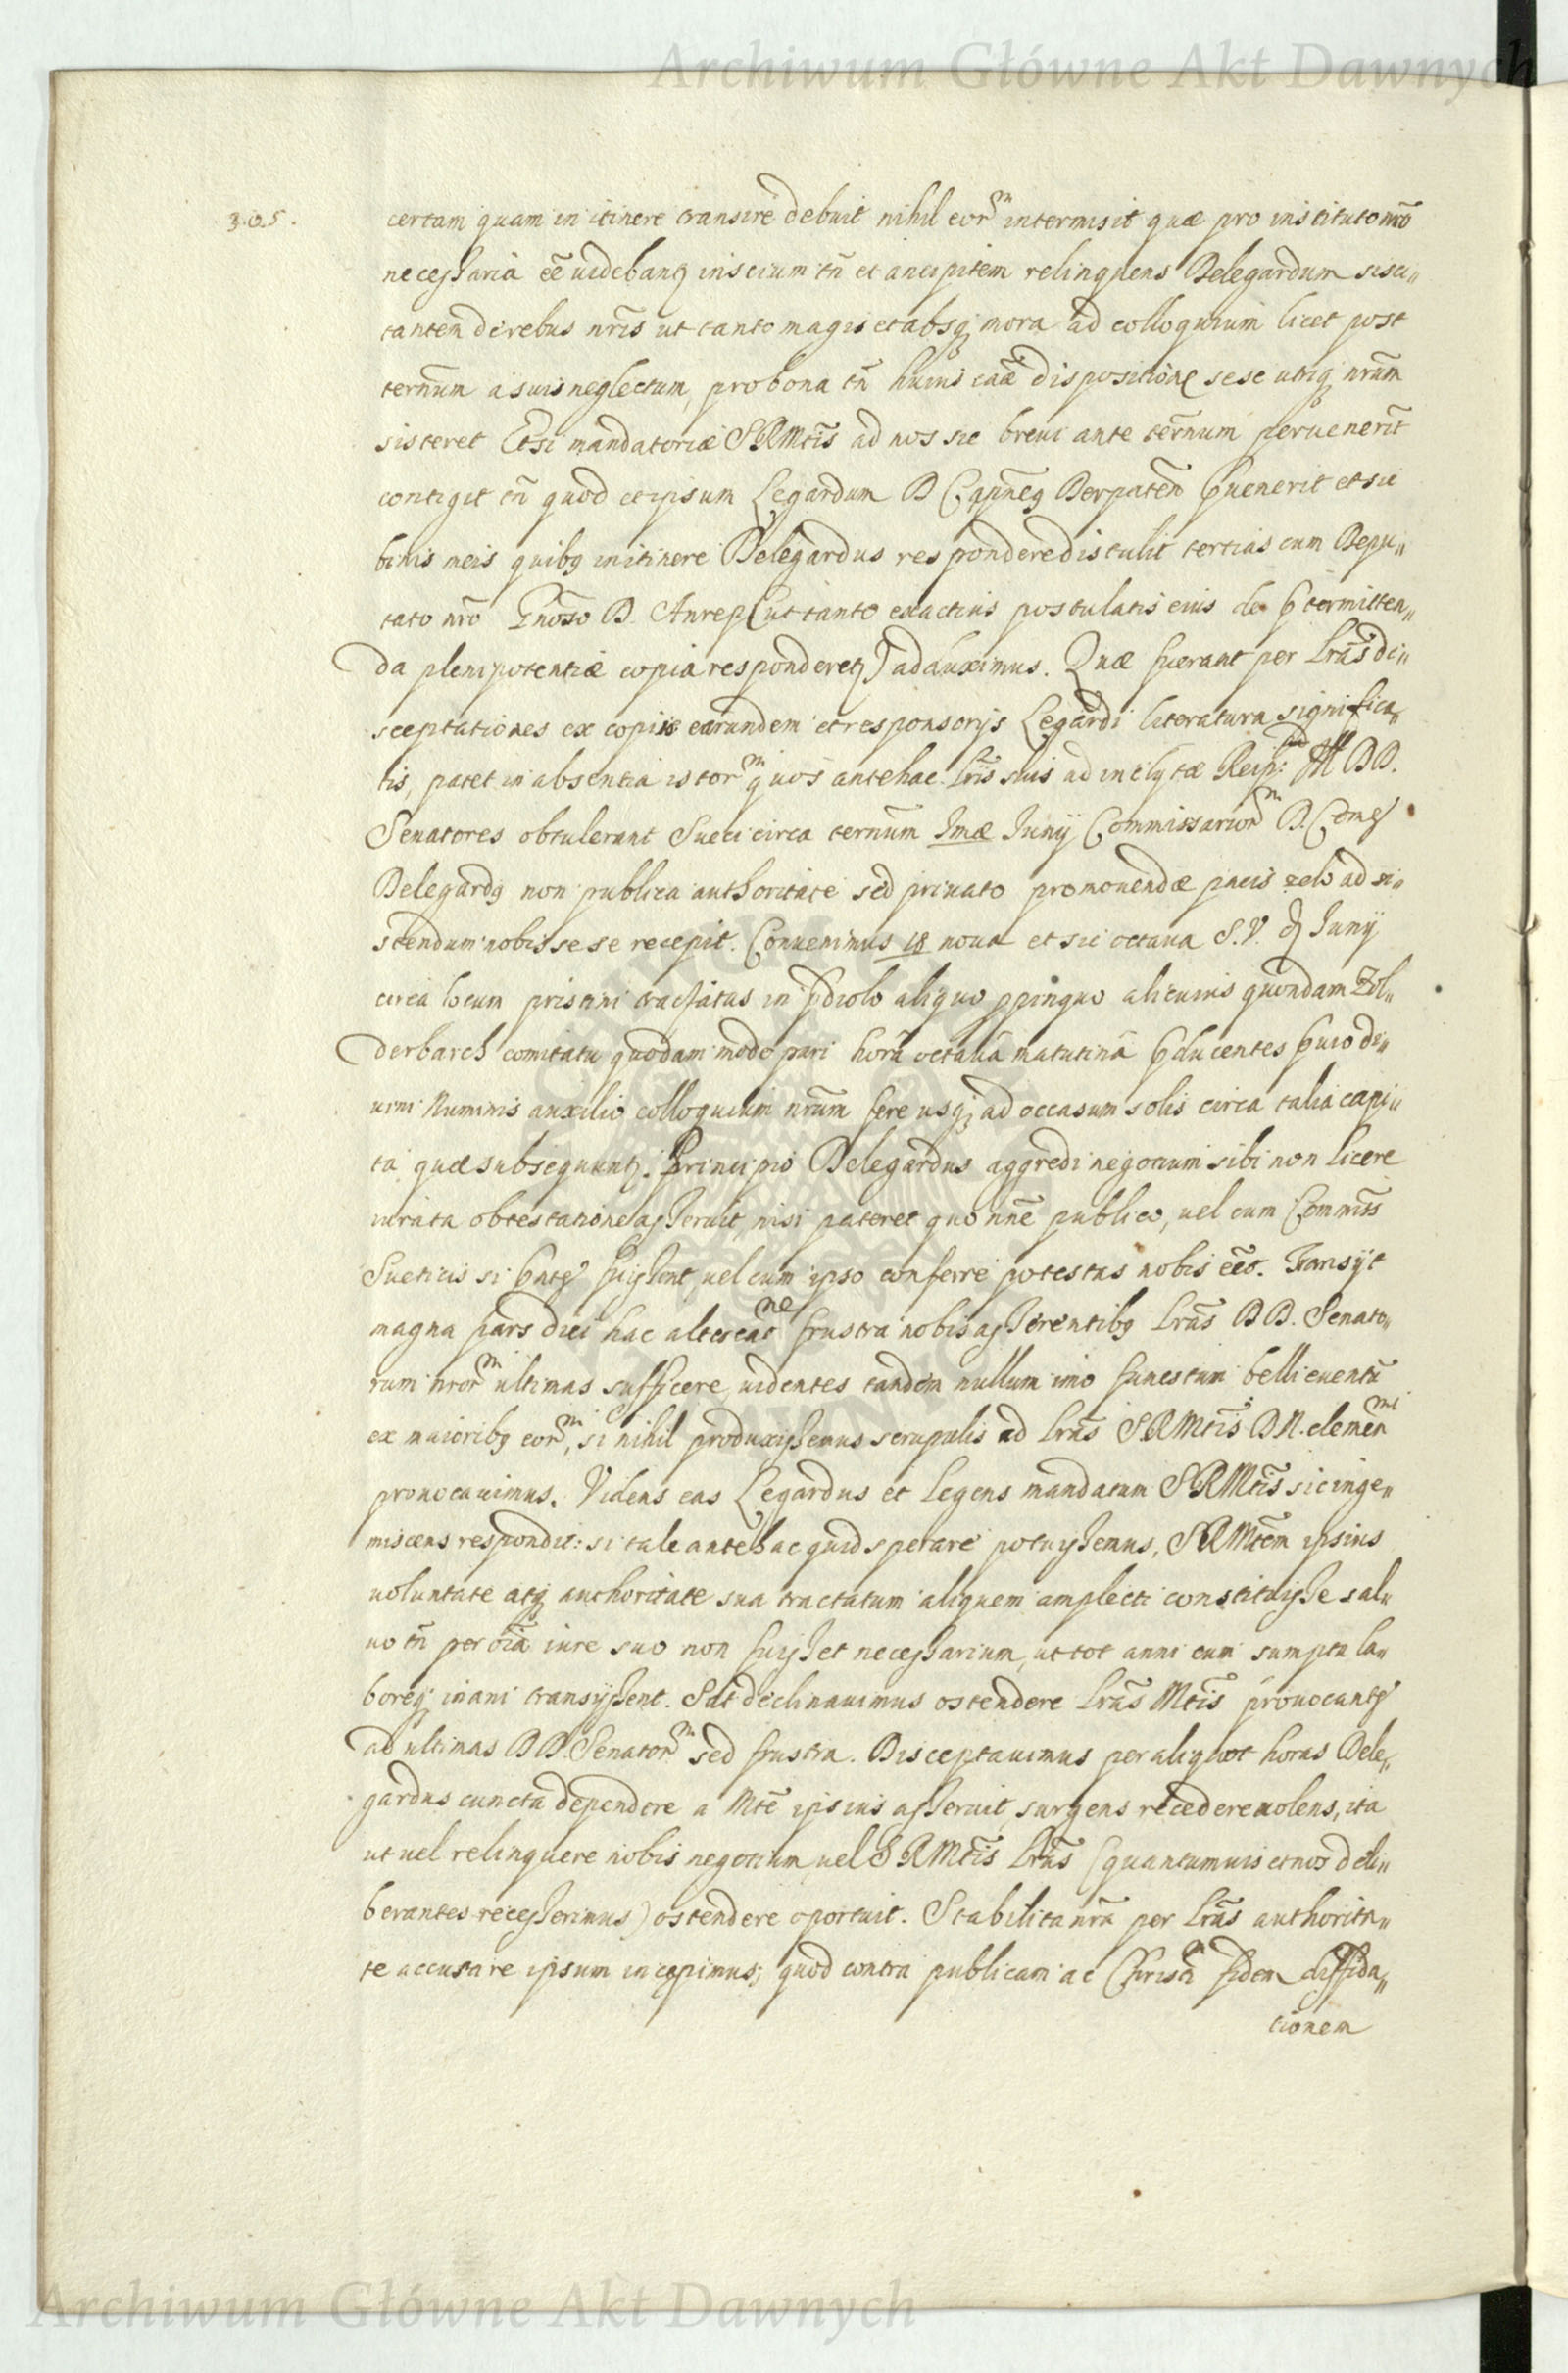 Archiwum Główne Akt Dawnych
305.
certam quam in itinere transire debuit nihil eorm intermisit quæ pro instituto nrō
necessaria eē uidebantꝫ inscium tn̄ et ancipitem relinquens Delegardum sisci„
tantem de rebus nrīs ut tanto magis et absqꝫ mora ad colloquium licet post
termn̄um a suis neglectum, pro bona tn̄ huius caǣ dispositione sese utriqꝫ nrūm
sisteret Etsi mandatoriæ SRMtīs ad nos sic breui ante term̄num peruenerīt
contigit tn̄ quod et ipsum Legardum D Capn̄eꝫ Derpatēn p̱uenerit et sic
binis meis quibꝫ in itinere Delegardus respondere distulit tertias cum Depu„
tato nrō Gnōso D. Anrep (ut tanto exactius postulatis eius de p̱termitten„
da plenipotentiæ copia responderetꝫ) adauximus. Quæ fuerant per Lrās di„
sceptationes ex copiis earundem et responsorijs Legardi literatura significa„
tis, patet in absentia istorm quos antehac Lrīs suis ad inclytæ Reip: M DD.
Senatores obtulerant Sueci circa termn̄um Imæ Iunij Commissariorm D. Comes
Delegardꝫ non publica authoritate sed priuato promouendæ pacis zelo ad si„
stendum nobis sese recepit. Conuenimus 18 noua et sic octaua S.V. Iunij
circa locum pristini tractatus in p̱diolo aliquo ppinquo alicuius quondam Zol„
derbach comitatu quodam modo pari horâ octauâ matutinâ p̱ducentes p̱uio di„
uini Numinis auxilio colloquium nrūm fere usqꝫ ad occasum solis circa talia capi„
ta quæ subsequuntꝫ. Principio Delegardus aggredi negotium sibi non licere
iurata obtestatione asseruit, nisi pateret quo nn̄e publico, uel cum Commiss̄
Sueticis si p̱ntes fuissent, uel cum ipso conferre potestas nobis eēt. Transijt
magna pars diei hac altercatne frustra nobis asserentibꝫ Lrās DD. Senato„
rum nrorm ultimas sufficere, uidentes tandem nullum imo funestum belli euentū
ex maioribꝫ eorm, si nihil produxissemus scrupulis ad Lrās SRMtīs DN. clemenmi
prouocauimus. Videns eas Legardus et legens mandatum SRMtīs sic inge„
miscens respondit: si tale antehac quid sperare potuissemus, SRMtēm ipsius
uoluntate atqꝫ authoritate sua tractatum aliquem amplecti constituisse sal„
uo tn̄ per oīa iure suo non fuisset necessarium, ut tot anni cum sumptu la„
boreqꝫ inani transijssent. Sat declinauimus ostendere Lrās Mtīs prouocantes
ad ultimas DD. Senatorm sed frustra. Disceptauimus per aliquot horas Dele„
gardus cuncta dependere a Mtē ipsius asseruit, surgens recedere uolens, ita
ut uel relinquere nobis negotium uel SRMtīs Lrās (quantumuis et nos deli„
berantes recesserimus) ostendere oportuit. Stabilita nrā per Lrās authorita„
te accusare ipsum incepimus; quod contra publicam ac Christi fidem diffida„
tionem
Archiwum Główne Akt Dawnych